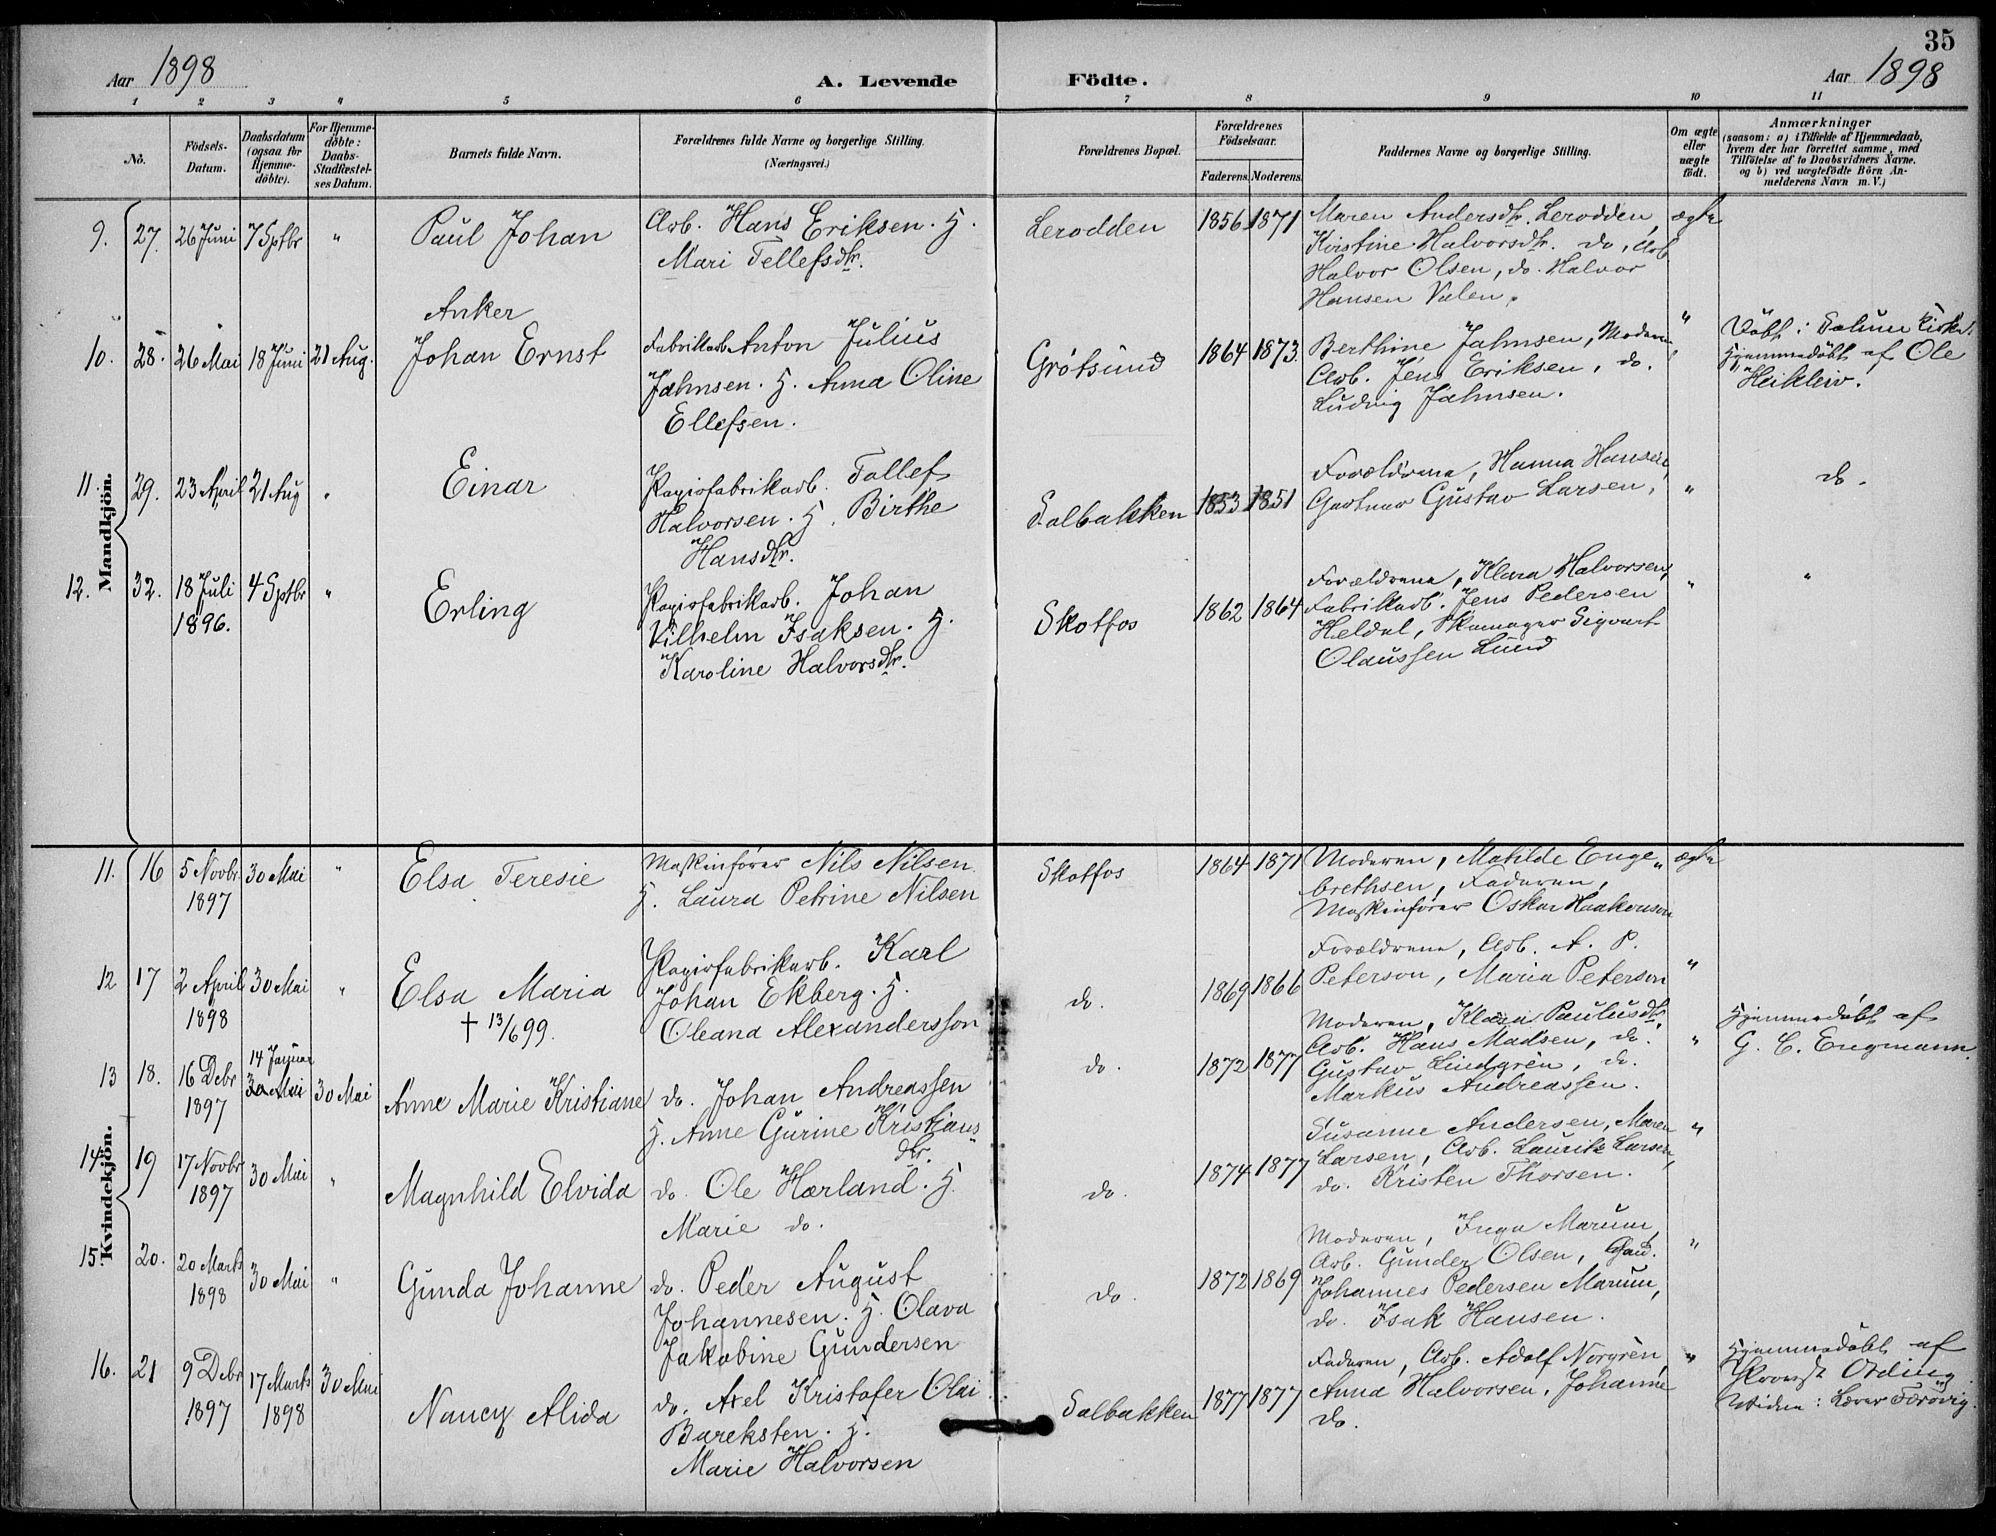 35
Aar 1898
A. Levende Födte.
Aar 1898
1 2 3 4 5 6 7 8 9 10 11
No.
Födsels-
Datum.
Daabsdatum
(ogsaa for
Hjemme-
döbte).
For Hjemme-
döbte:
Daabs-
Stadfæstel-
ses Datum.
Barnets fulde Navn.
Forældrenes fulde Navne og borgerlige Stilling.
(Næringsvei.)
Forældrenes Bopæl.
Forældrenes
Födselsaar.
Faderens. Moderens.
Faddernes Navne og borgerlige Stilling.
Om ægte
eller
uægte
födt.
Anmærkninger
(saasom: a) i Tilfælde af Hjemmedaab,
hvem der har forrettet samme, med
Tilföielse af to Daabsvidners Navne.
og b) ved uægtefödte Börn An-
melderens Navn m. V.)
Mandkjön.
9. 27. 26 Juni 7 Sptbr "
Paul Johan
Arb. Hans Eriksen. H.
Mari Tellefsdtr.
Lerodden
1856 1871
Maren Andersdtr. Lerodden,
Kristine Halvorsdtr. do, Arb
Halvor Olsen, do. Halvor
Hansen Valen.
ægte
10. 28. 26 Mai 18 Juni 21 Aug.
Anker
Johan Ernst
Fabrikarb Anton Julius
Jahnsen. H. Anna Oline
Ellefsen.
Grötsund
1864 1873.
Berthine Jahnsen, Moderen,
Arb. Jens Eriksen, do.
Ludvig Jahnsen.
"
Döbt i Solum Kirke.
Hjemmedöbt af Ole
Heikleiv.
11. 29. 23 April 21 Aug "
Einar
Papirfabrikarb. Tallef
Halvorsen. H. Birthe
Hansdtr.
Solbakken
1853 1851
Forældrene, Hanna Hansen,
Gartner Gustav Larsen,
"
do.
12. 32. 18 Juli
1896.
4 Sptbr "
Erling
Papirfabrikarb. Johan
Vilhelm Isaksen. H.
Karoline Halvorsdtr.
Skotfos
1862 1864
Forældrene, Klara Halvorsen,
Fabrikarb. Jens Pedersen
Heldal, Skomager Sigvart
Olaussen Lund
"
"
Kvindekjön.
11. 16 5 Novbr
1897
30 Mai "
Elsa Teresie
Maskinförer Nils Nilsen
H. Laura Petrine Nilsen
Skotfos
1864 1871
Moderen, Matilde Enge-
brethsen, Faderen,
Maskinförer Oskar Haakonson
ægte
12 17 2 April
1898
30 Mai "
Elsa Maria
† 13/6 99.
Papirfabrikarb. Karl
Johan Ekberg. H.
Oleana Alexandersson
do.
1869 1866
Forældrene, Arb. A. P.
Peterson, Maria Peterson
"
13 18. 16 Debr
1897
14 Januar
30 Mai
30 Mai
Anne Marie Kristiane
do. Johan Andreassen
H. Anne Gurine Kristians
dtr.
do.
1872 1877
Moderen, Klara Paulusdtr.
Arb. Hans Madsen, do.
Gustav Lindgrén, do.
Markus Andreassen.
"
Hjemmedöbt af
G. C. Engmann.
14 19 17 Novbr
1897
30 Mai "
Magnhild Elvida
do. Ole Hærland. H.
Marie do.
do.
1874 1877
Susanne Andersen, Maren
Larsen, Arb. Lauritz Larsen,
do. Kristen Thorsen.
"
15. 20. 20 Marts
1898
30 Mai "
Gunda Johanne
do. Peder August
Johannesen. H. Olava
Jakobine Gundersen
do.
1872 1869
Moderen, Inga Marum,
Arb. Gunder Olsen, Gaard.
Johannes Pedersen Marum,
do. Isak Hansen.
"
16. 21 9 Debr
1897
17 Marts
1898
30 Mai
Nancy Alida
do. Axel Kristofer Olai
Bareksten. H.
Marie Halvorsen
Solbakken
1877 1877
Faderen, Arb. Adolf Norgrén,
Anna Halvorsen, Johanne
do.
"
Hjemmedöbt af
Provst Ording.
Vidne: Lærer Förövig.